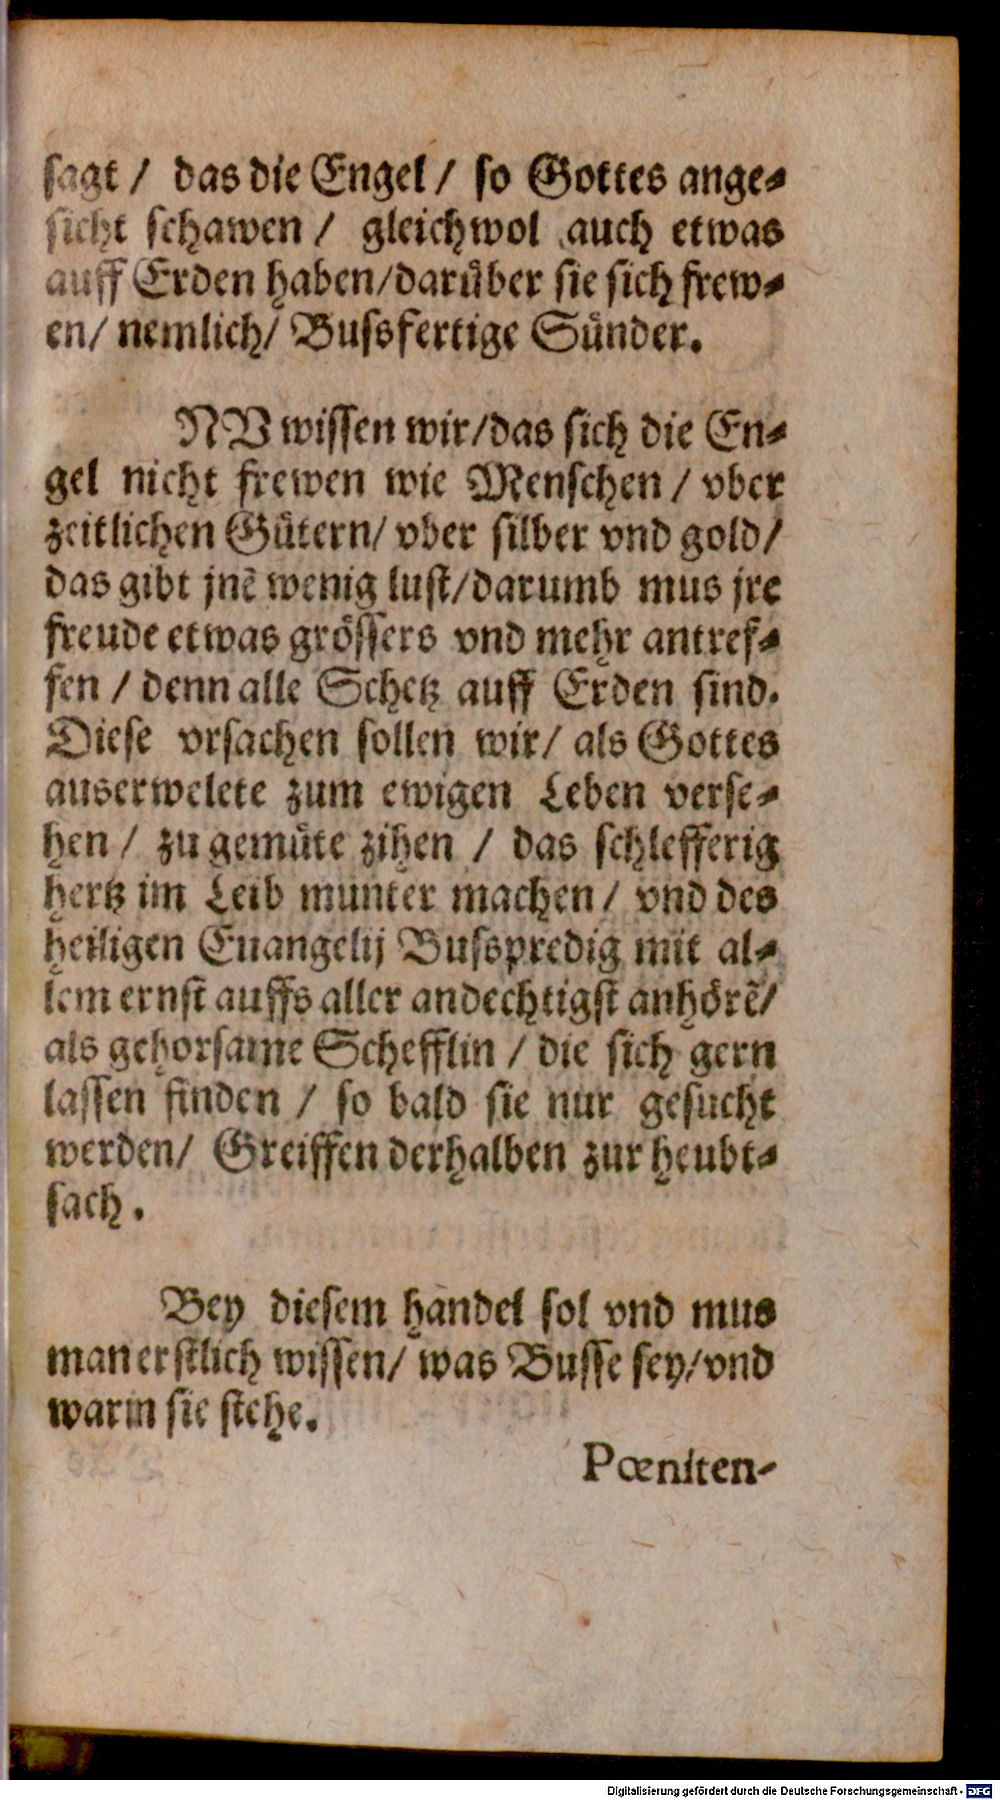 sagt / das die Engel / so Gottes ange-
sicht schawen / gleichwol auch etwas
auff Erden haben/darüber sie sich frew-
en/ nemlich/ Bussfertige Sünder.
NV wissen wir/das sich die En-
gel nicht frewen wie Menschen / vber
zeitlichen Gütern/ vber silber vnd gold/
das gibt jnē wenig lust/darumb mus jre
freude etwas grössers vnd mehr antref-
fen / denn alle Schetz auff Erden sind.
Diese vrsachen sollen wir/ als Gottes
auserwelete zum ewigen Leben verse-
hen / zu gemüte zihen / das schlefferig
hertz im Leib munter machen / vnd des
heiligen Euangelij Busspredig mit al-
lem ernst auffs aller andechtigst anhörē/
als gehorsame Schefflin / die sich gern
lassen finden / so bald sie nur gesucht
werden/ Greiffen derhalben zur heubt-
sach.
Bey diesem handel sol vnd mus
man erstlich wissen/ was Busse sey/vnd
warin sie stehe.
Pœniten-
Digitalisierung gefördert durch die Deutsche Forschungsgemeinschaft - DFG